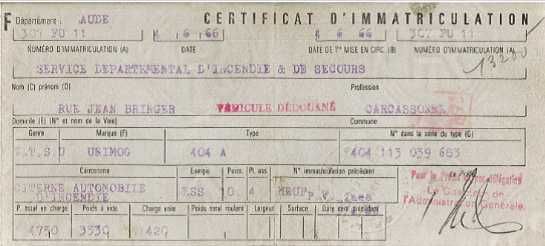 F Département : AUDE CERTIFICAT D'IMMATRICULATION
307 FU 11 6 / 66 6 / 66 307 FU 11
NUMÉRO D'IMMATRICULATION (A) DATE DATE DE 1re MISE EN CIRC. (B) NUMÉRO D'IMMATRICULATION (A)
13200
SERVICE DEPARTEMENTAL D'INCENDIE & DE SECOURS
Nom (C) prénom (D) Profession
RUE JEAN BRINGER VÉHICULE DÉDOUANÉ CARCASSONNE
Domicile (E) (N° et nom de la Voie) Commune
Genre Marque (F) Type N° dans la série du type (G)
UNIMOG 404 A 404 113 039 683
Carrosserie Energie Puiss. Pl. ass N° immatriculation précédent
CITERNE AUTOMOBILE D'INCENDIE ESS 10 4 NEUF
Pour le Préfet et par délégation
de l'Administration Générale.
P. total en charge Poids à vide Charge utile Poids total roulant Largeur Surface Date cert. précédent
4750 3530 1420